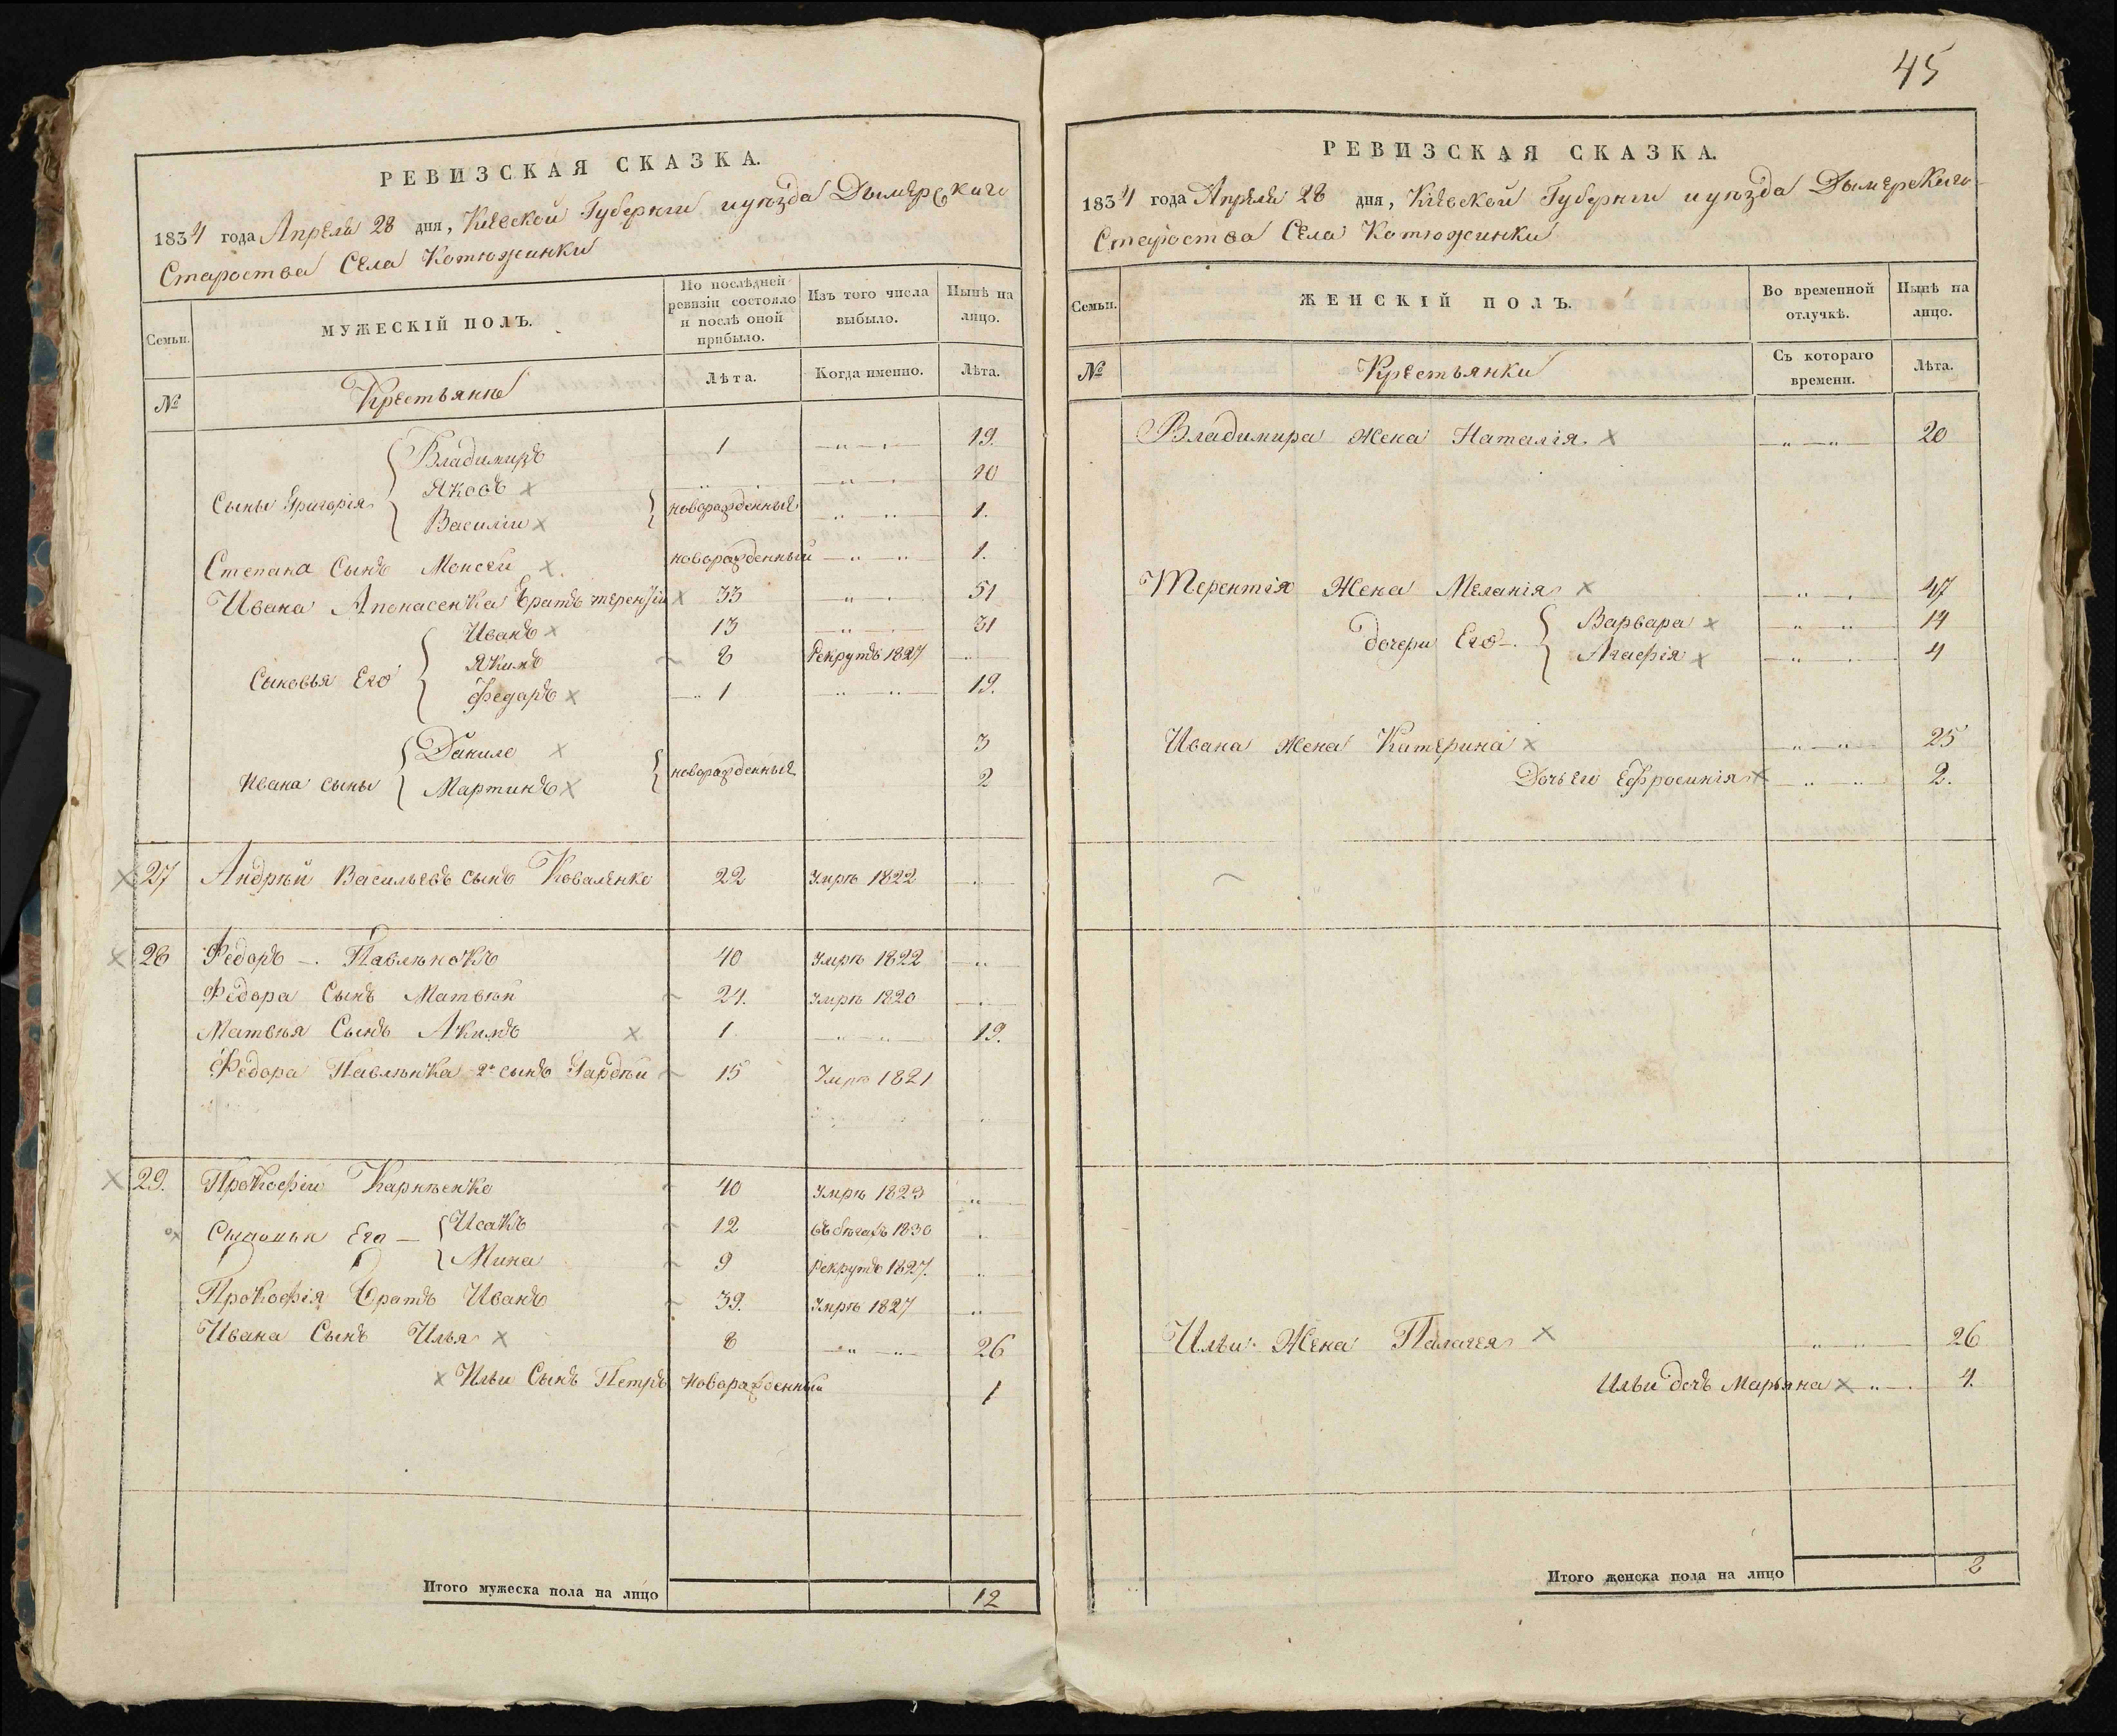 45
РЕВИЗСКАЯ СКАЗКА.
1834 года Апреля 28 дня, Кіевской Губерніи и уѣзда Дымерскаго
Староства Села Котюжинки
Семьи.
МУЖЕСКІЙ ПОЛЪ.
По послѣдней ревизіи состояло и послѣ оной прибыло.
Изъ того числа выбыло.
Нынѣ на лицо.
№
Крестьяне
Лѣта.
Когда именно.
Лѣта.
Владимиръ 1 19.
Сыны Григорія Яковъ 10
Василии новорожденные 1.
Степана Сынъ Моисеи новорожденный 1.
Ивана Апонасенка братъ терентіи 33 51
Иванъ 13 31
Сыновья Его Якимъ 8 Рекрутъ 1827
Федоръ 1 19.
Данило 3
Ивана сыны Мартинъ новорожденные 2
27 Андрѣй Васильевъ сынъ Коваленко 22 Умре 1822
28 Федоръ Павлѣнокъ 40 Умрѣ 1822
Федора Сынъ Матвѣй 24. Умрѣ 1820
Матвѣя Сынъ Акимъ 1 19.
Федора Павлѣнка 2й сынъ Гардѣй 15 Умрѣ 1821
29. Прокофіи Карнѣенко 40 Умрѣ 1823
Его Исакъ 12 въ бѣгахъ 1830
Мина 9 Рекрутъ 1827.
Прокофія братъ Иванъ 39. Умрѣ 1827
Ивана Сынъ Илья 8 26
Ильи Сынъ Петръ новорожденный 1
Итого мужеска пола на лицо 12
РЕВИЗСКАЯ СКАЗКА.
1834 года Апреля 28 дня, Кіевской Губерніи и уѣзда Дымерскаго
Староства Села Котюжинки
Семьи.
ЖЕНСКІЙ ПОЛЪ.
Во временной отлучкѣ.
Нынѣ на лицо.
№
Крестьянки
Съ котораго времени.
Лѣта.
Владимира жена Наталія 20
Терентія Жена Меланія 47
дочери Его Варвара 14
Агафія 4
Ивана жена Катерина 25
Дочь Его Ефросинія 2.
Ильи Жена Палагея 26
Ильи дочь Марьяна 4.
Итого женска пола на лицо 8